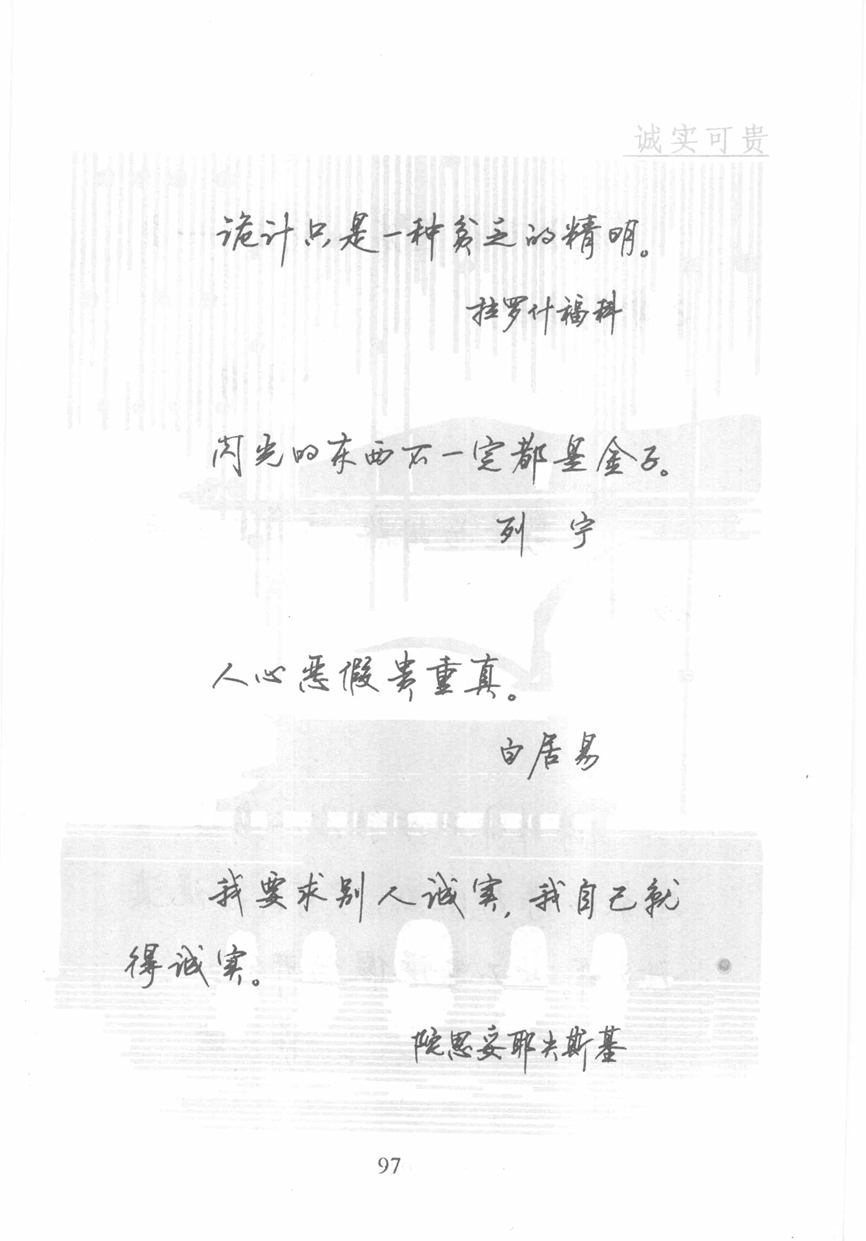 诚实可贵
诡计只是一种贫乏的精明。
拉罗什福科
闪光的东西不一定都是金子。
列 宁
人心恶假贵重真。
白居易
我要求别人诚实,我自己就
得诚实。
陀思妥耶夫斯基
97